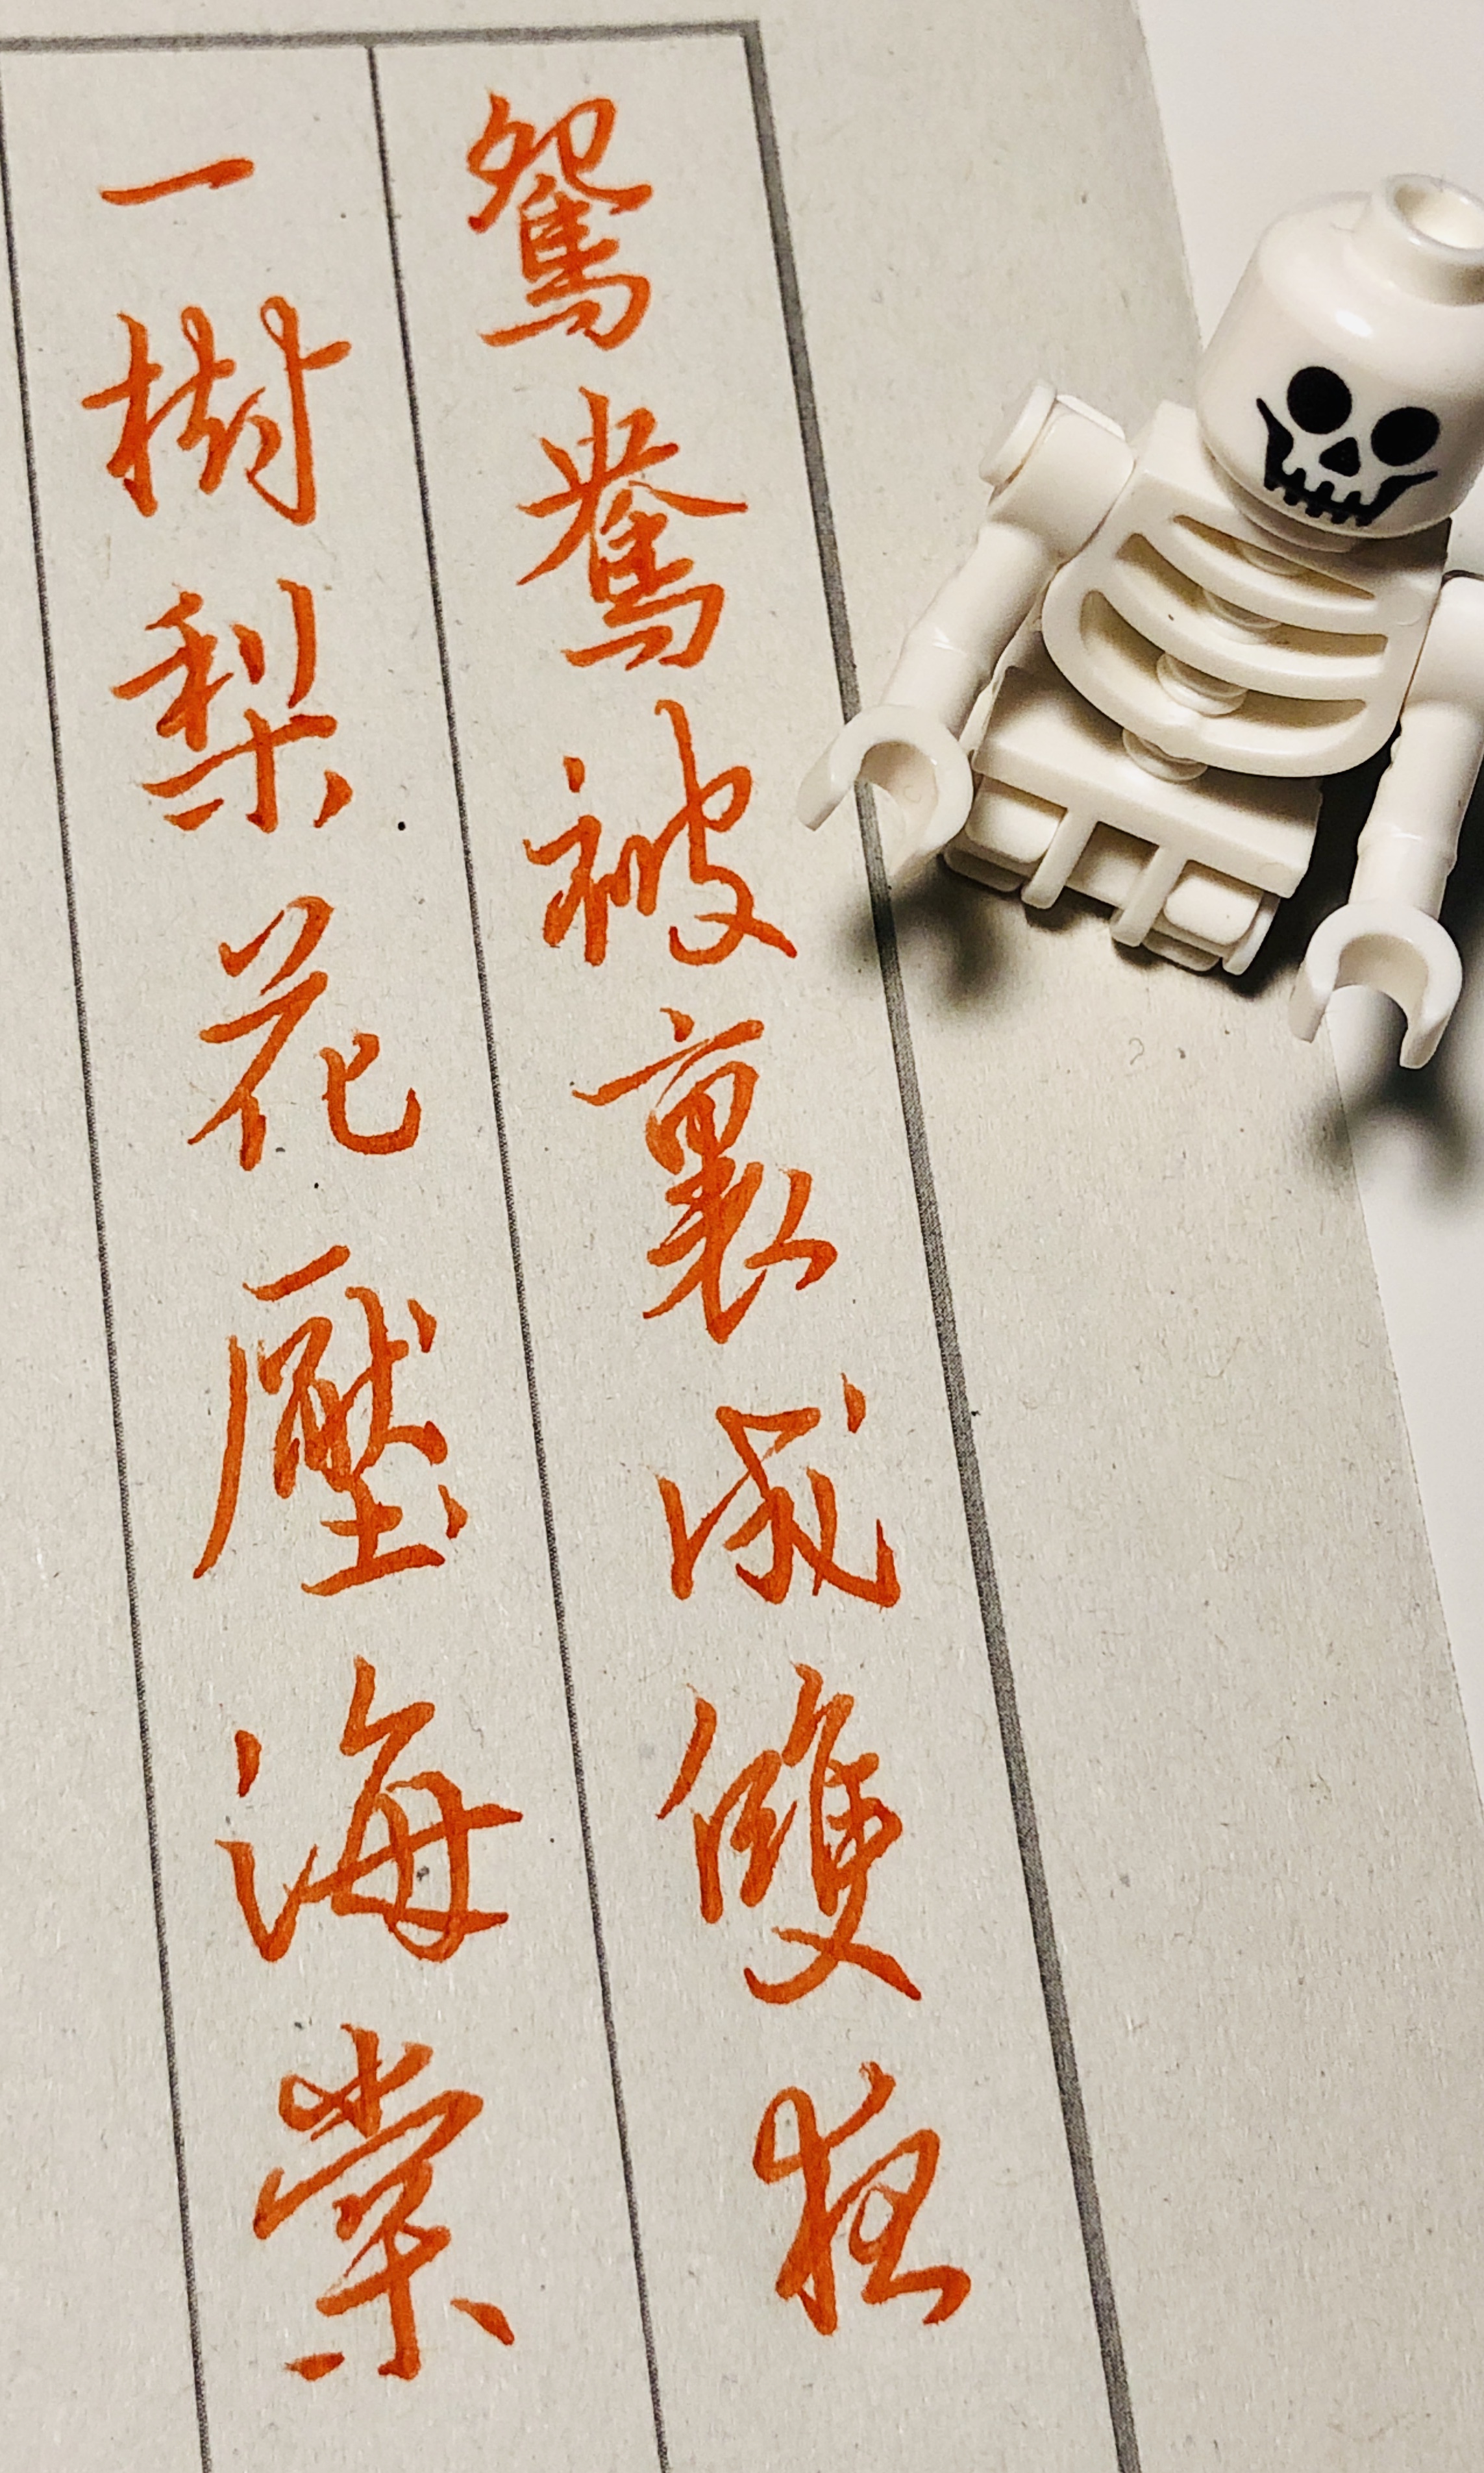 鴛鴦被裏成雙夜
一樹梨花壓海棠